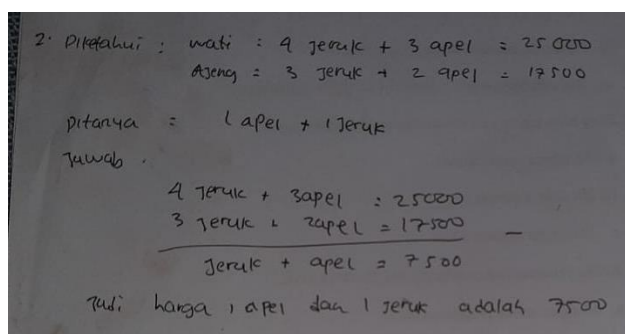 2. Diketahui : wati : 4 Jeruk + 3 apel = 25000
Ajeng = 3 Jeruk + 2 apel = 17500
Ditanya = 1 apel + 1 Jeruk
Jawab .
4 Jeruk + 3apel = 25000
3 Jeruk + 2apel = 17500 -
Jeruk + apel = 7500
Jadi harga 1 apel dan 1 Jeruk adalah 7500